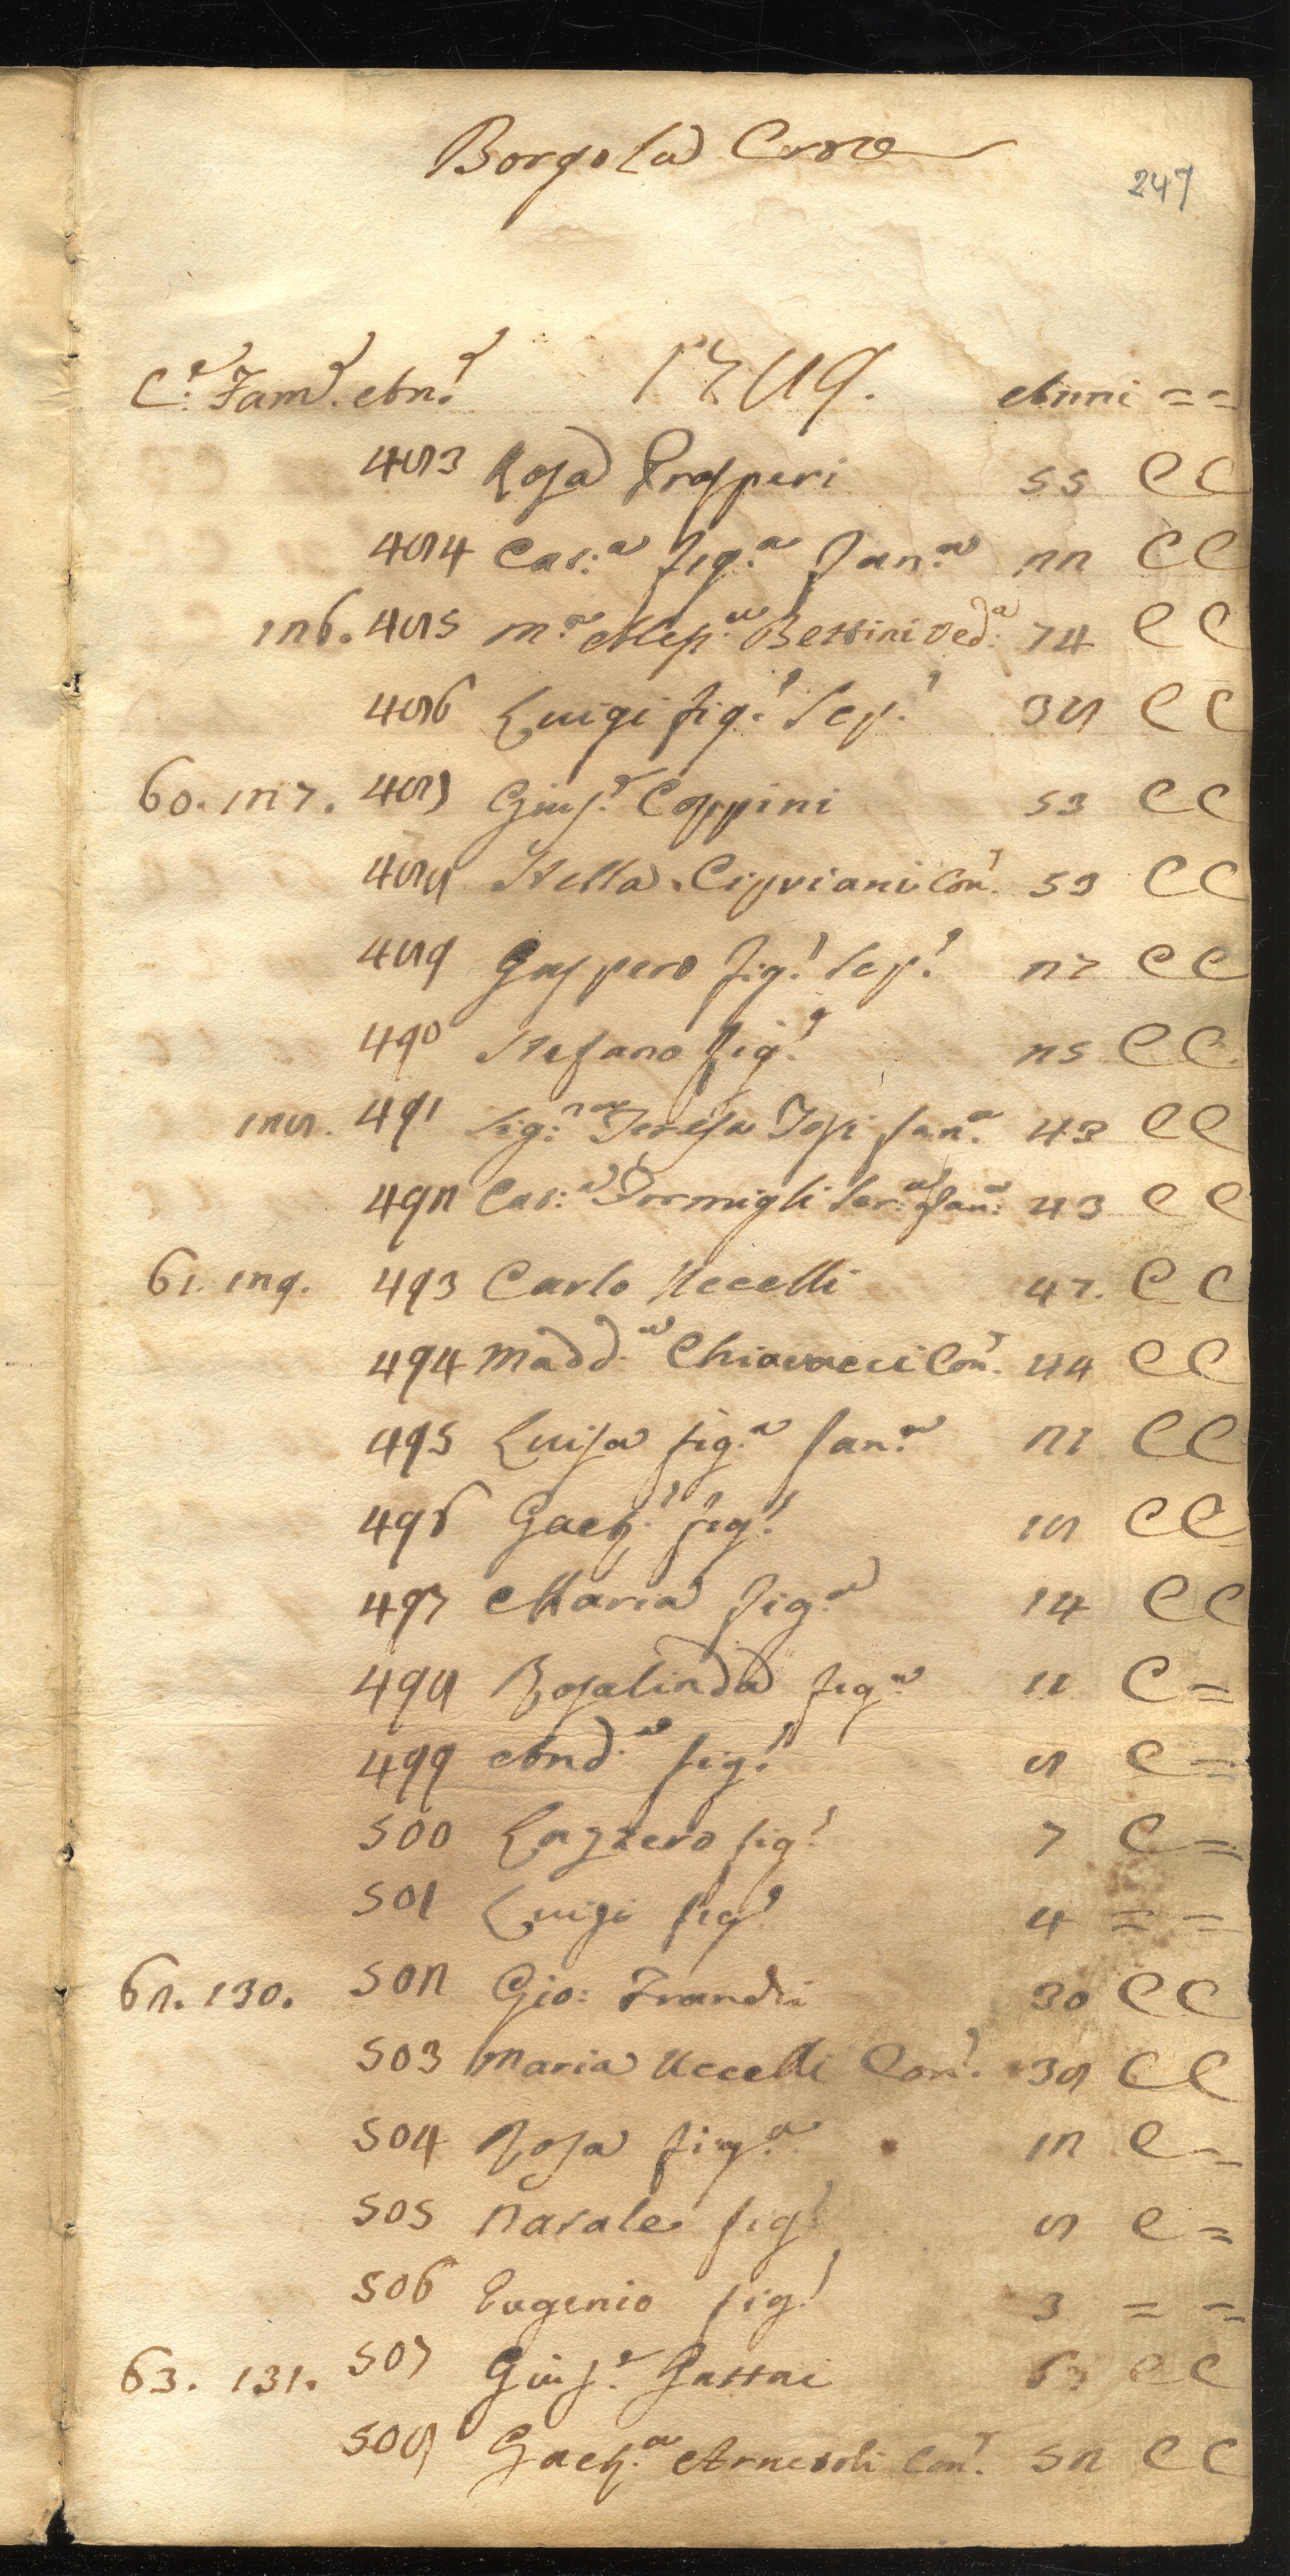 Borgo la Croce
247
C.e Fam.e An.e 1789. Anni = =
483 Rosa Prosperi 55 C C
484 Cat:a fig.a Fan.a 22 C C
126. 485 M.a Aless.a Bettini Ved.a 74 C C
486 Luigi fig.o Scp.o 38 C C
60. 127. 487 Gius.e Coppini 53 C C
488 Stella Cipriani Con.e 53 C C
489 Gaspero fig.o Scp.o 27 C C
490 Stefano fig.o 25 C C
128. 491 Sig.ra Teresa Fan.a 43 C C
492 Cat:a Formigli Ser:a Fan:a 43 C C
61. 129. 493 Carlo Uccelli 47. C C
494 Madd.a Chiavacci Con.e 44 C C
495 Luisa fig.a Fan.a 21 C C
496 Gaet.o fig.o 18 C C
497 Maria fig.a 14 C C
498 Rosalinda fig.a 11 C =
499 And.a fig.o 8 C =
500 Lazzero fig.o 7 C =
501 Luigi fig.o 4 = =
62. 130. 502 Gio: Frandi 30 C C
503 Maria Uccelli Con.e 38 C C
504 Rosa fig.a 12 C =
505 Natale fig.o 8 C =
506 Eugenio fig.o 3 = =
63. 131. 507 Gius.e Gattai 63 C C
508 Gaet.a Con.e 52 C C